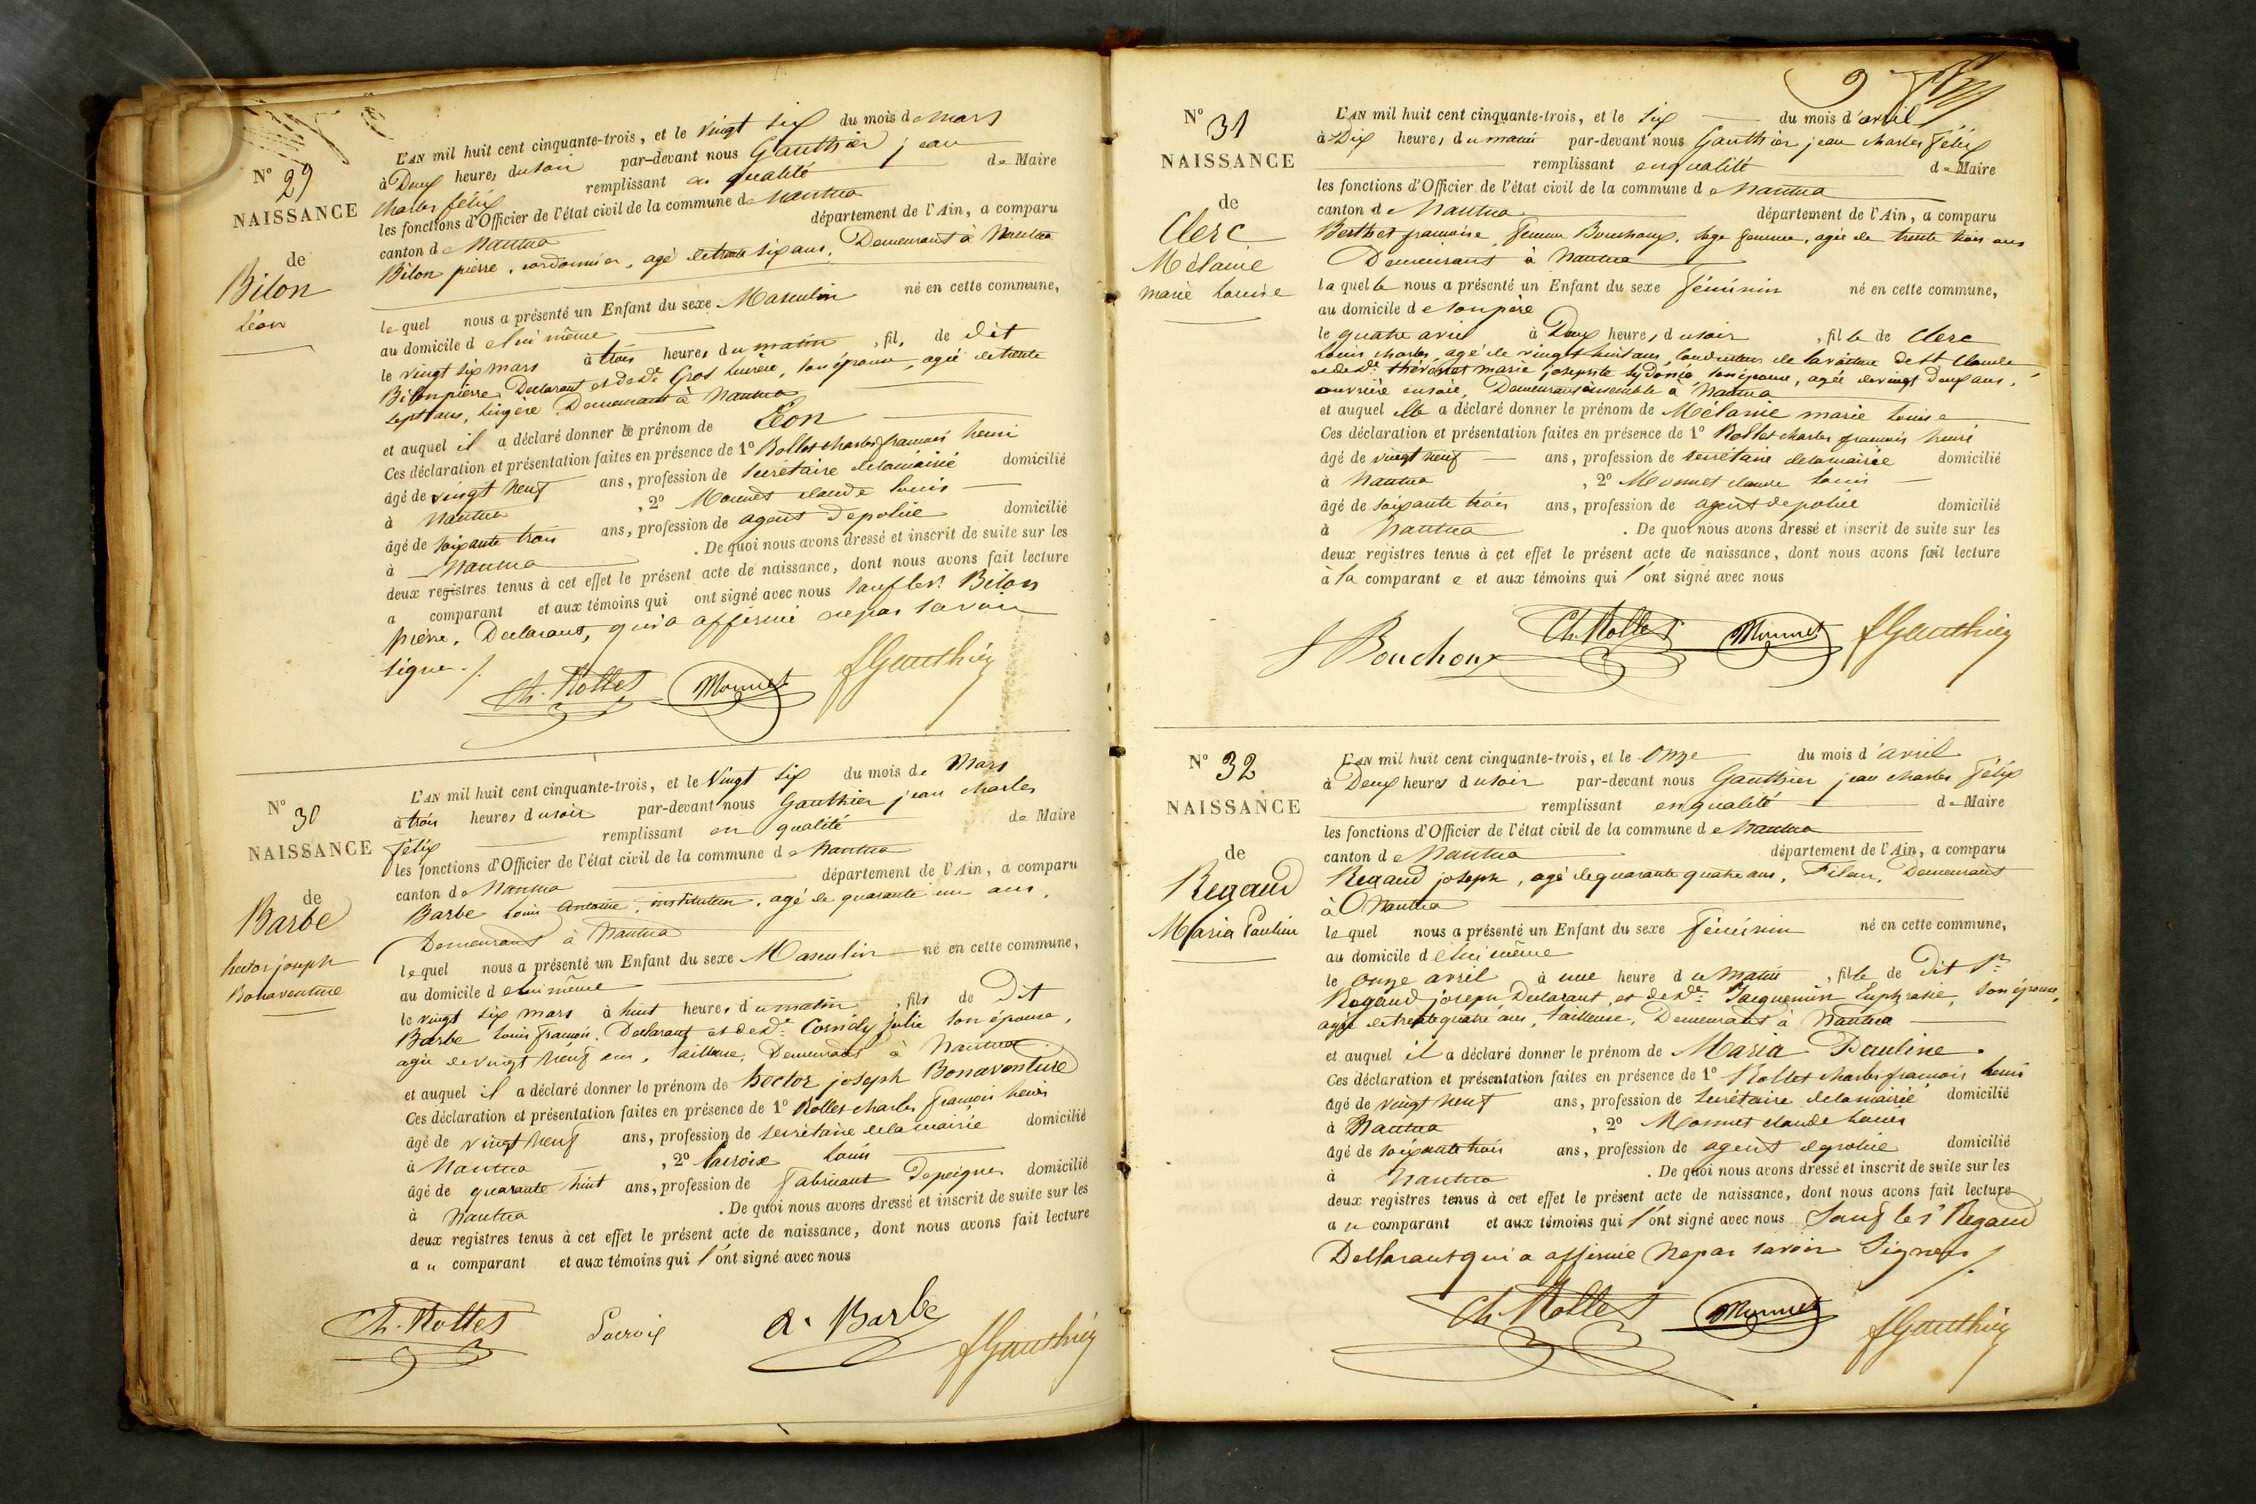 N° 29
NAISSANCE
de
Bilon
Léon
L'AN mil huit cent cinquante-trois, et le vingt six du mois de Mars
à Deux heures du soir par-devant nous Gauthier jean
charles félix remplissant en qualité de Maire
les fonctions d'Officier de l'état civil de la commune de Nantua
canton de Nantua département de l'Ain, a comparu
Bilon pierre, cordonnier, agé de trente six ans, Demeurant à Nantua
lequel nous a présenté un Enfant du sexe Masculin né en cette commune,
au domicile de lui même
le vingt six mars à trois heures du matin, fils de dit
Bilon pierre Declarant et de de Gros Lucrèce, son épouse, agée de trente
sept ans, lingère Demeurant à Nantua
et auquel il a déclaré donner le prénom de Léon
Ces déclaration et présentation faites en présence de 1° Rollet charles françois henri
âgé de vingt neuf ans, profession de secrétaire de la mairie domicilié
à Nantua, 2° Monnet claude louis
âgé de soixante trois ans, profession de agent de police domicilié
à Nantua. De quoi nous avons dressé et inscrit de suite sur les
deux registres tenus à cet effet le présent acte de naissance, dont nous avons fait lecture
a comparant et aux témoins qui ont signé avec nous sauf le sr. Bilon
pierre, Declarant, qui a affirmé ne pas savoir
signe ./.
Ch. Rollet Monnet f Gauthier
N° 30
NAISSANCE
de
Barbe
hector joseph
Bonaventure
L'AN mil huit cent cinquante-trois, et le Vingt six du mois de Mars
à trois heures du soir par-devant nous Gauthier jean charles
félix remplissant en qualité de Maire
les fonctions d'Officier de l'état civil de la commune de Nantua
canton de Nantua département de l'Ain, a comparu
Barbe louis Antoine, instituteur, agé de quarante un ans,
Demeurant à Nantua
lequel nous a présenté un Enfant du sexe Masculin né en cette commune,
au domicile de lui même
le vingt six mars à huit heures du matin, fils de Dit
Barbe louis françois, Declarant et de de. Cornély Julie son épouse,
agée de vingt neuf ans, tailleuse, Demeurant à Nantua
et auquel il a déclaré donner le prénom de hector joseph Bonaventure
Ces déclaration et présentation faites en présence de 1° Rollet charles françois henri
âgé de vingt neuf ans, profession de secrétaire de la mairie domicilié
à Nantua, 2° Lacroix Louis
âgé de quarante huit ans, profession de fabricant de peignes domicilié
à Nantua. De quoi nous avons dressé et inscrit de suite sur les
deux registres tenus à cet effet le présent acte de naissance, dont nous avons fait lecture
au comparant et aux témoins qui l'ont signé avec nous
Ch. Rollet Lacroix A. Barbe f Gauthier
9
N° 31
NAISSANCE
de
Clerc
Mélanie
marie Louise
L'AN mil huit cent cinquante-trois, et le six du mois d'avril
à Dix heures du matin par-devant nous Gauthier jean charles félix
remplissant en qualité de Maire
les fonctions d'Officier de l'état civil de la commune de Nantua
canton de Nantua département de l'Ain, a comparu
Berthet francoise, femme Bouchoux, sage femme, agée de trente trois ans
Demeurant à Nantua
laquelle nous a présenté un Enfant du sexe féminin né en cette commune,
au domicile de son père
le quatre avril à Deux heures du soir, fille de Clerc
louis charles, agé de vingt huit ans, conducteur de la voiture de St Claude
et de de thévenet marie josephte sydonie son épouse, agée de vingt deux ans,
ouvrière en soie, Demeurans ensemble à Nantua
et auquel elle a déclaré donner le prénom de Mélanie marie Louise
Ces déclaration et présentation faites en présence de 1° Rollet charles françois henri
âgé de vingt neuf ans, profession de secrétaire de la mairie domicilié
à Nantua, 2° Monnet claude louis
âgé de soixante trois ans, profession de agent de police domicilié
à Nantua. De quoi nous avons dressé et inscrit de suite sur les
deux registres tenus à cet effet le présent acte de naissance, dont nous avons fait lecture
à la comparante et aux témoins qui l'ont signé avec nous
f Bouchoux Ch. Rollet Monnet f Gauthier
N° 32
NAISSANCE
de
Regaud
Maria Pauline
L'AN mil huit cent cinquante-trois, et le Onze du mois d'avril
à Deux heures du soir par-devant nous Gauthier jean charles félix
remplissant en qualité de Maire
les fonctions d'Officier de l'état civil de la commune de Nantua
canton de Nantua département de l'Ain, a comparu
Regaud joseph, agé de quarante quatre ans, Fileur, Demeurant
à Nantua
lequel nous a présenté un Enfant du sexe féminin né en cette commune,
au domicile de lui même
le onze avril à une heure du Matin, fille de Dit Sr
Regaud joseph Declarant, et de de. Jacquemin Euphrasie, son épouse,
agée de trente quatre ans, tailleuse, Demeurant à Nantua
et auquel il a déclaré donner le prénom de Maria Pauline.
Ces déclaration et présentation faites en présence de 1° Rollet charles françois henri
âgé de vingt neuf ans, profession de secrétaire de la mairie domicilié
à Nantua, 2° Monnet claude Louis
âgé de soixante trois ans, profession de agent de police domicilié
à Nantua. De quoi nous avons dressé et inscrit de suite sur les
deux registres tenus à cet effet le présent acte de naissance, dont nous avons fait lecture
au comparant et aux témoins qui l'ont signé avec nous Sauf le sr Regaud
Declarant qui a affirmé ne pas savoir Signer ./.
Ch. Rollet Monnet f Gauthier